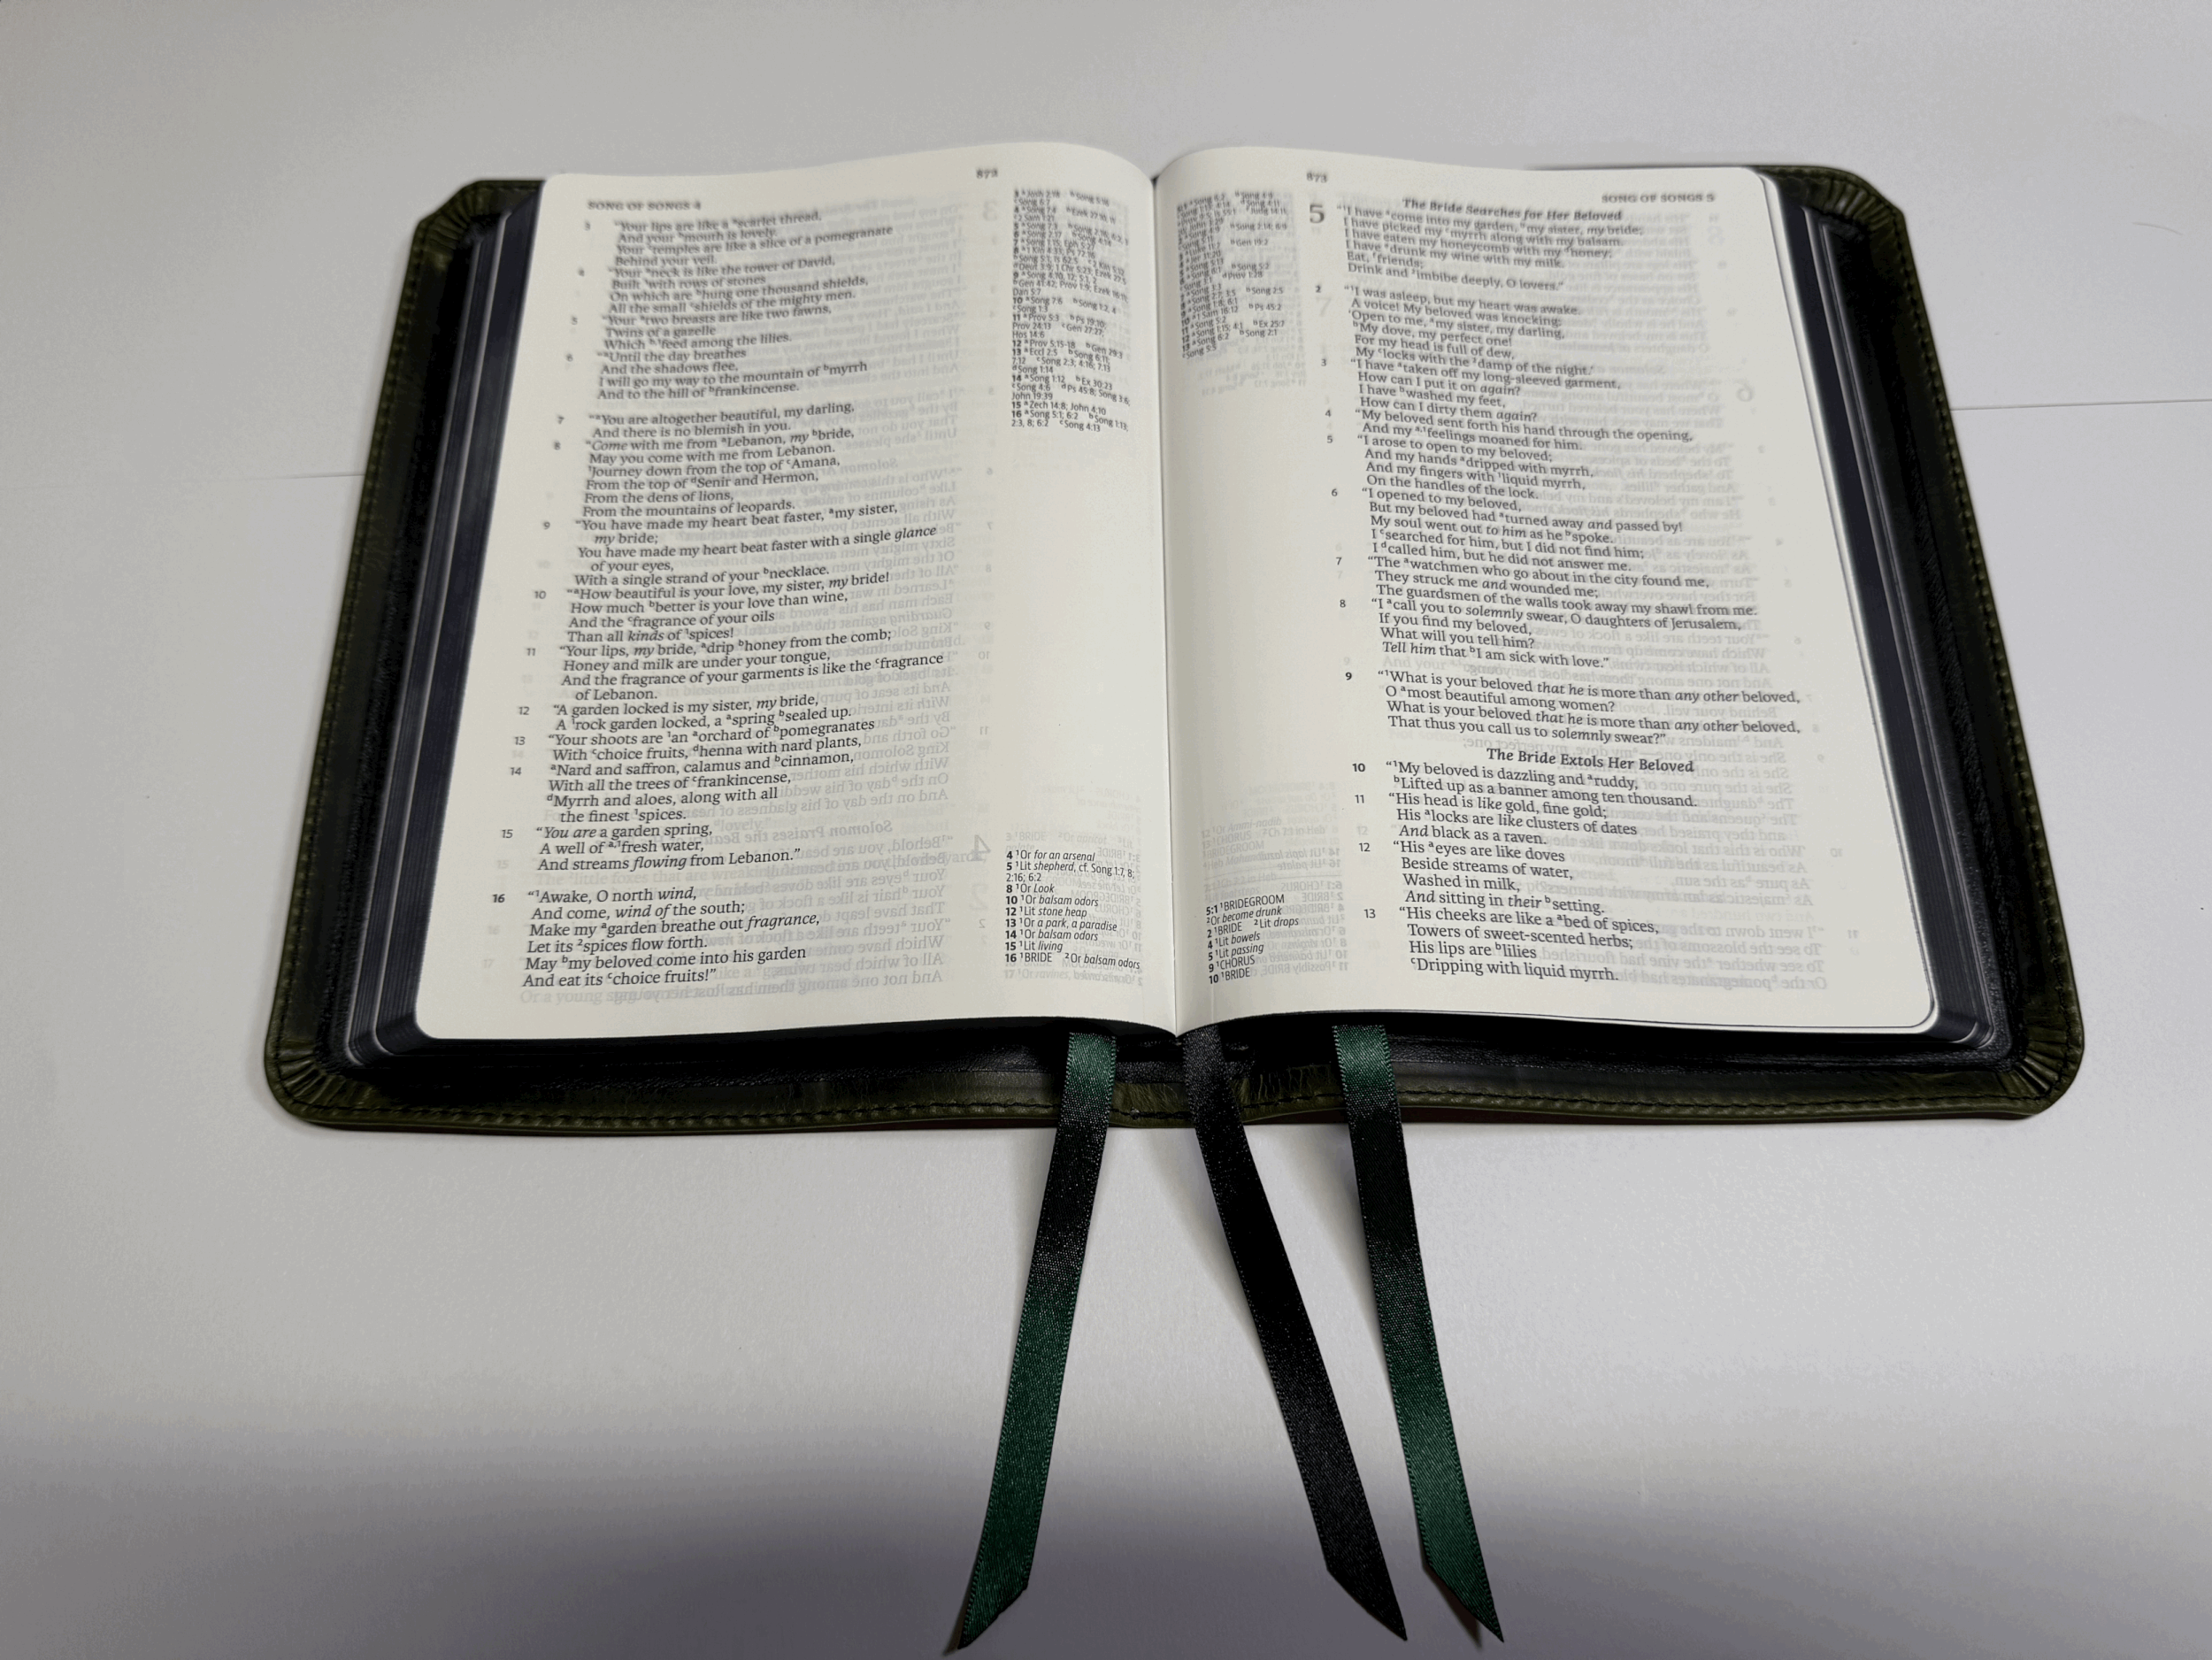 872
SONG OF SONGS 4
3 "Your lips are like a ᵃscarlet thread,
And your ᵇmouth is lovely.
Your ᶜtemples are like a slice of a pomegranate
Behind your veil.
4 "Your ᵃneck is like the tower of David,
Built ¹with rows of stones
On which are ᵇhung one thousand shields,
All the small ᶜshields of the mighty men.
5 "Your ᵃtwo breasts are like two fawns,
Twins of a gazelle
Which ᵇ¹feed among the lilies.
6 "ᵃUntil the day breathes
And the shadows flee,
I will go my way to the mountain of ᵇmyrrh
And to the hill of ᵇfrankincense.
7 "ᵃYou are altogether beautiful, my darling,
And there is no blemish in you.
8 "Come with me from ᵃLebanon, my ᵇbride,
May you come with me from Lebanon.
¹Journey down from the top of ᶜAmana,
From the top of ᵈSenir and Hermon,
From the dens of lions,
From the mountains of leopards.
9 "You have made my heart beat faster, ᵃmy sister,
my bride;
You have made my heart beat faster with a single glance
of your eyes,
With a single strand of your ᵇnecklace.
10 "ᵃHow beautiful is your love, my sister, my bride!
How much ᵇbetter is your love than wine,
And the ᶜfragrance of your oils
Than all kinds of ¹spices!
11 "Your lips, my bride, ᵃdrip ᵇhoney from the comb;
Honey and milk are under your tongue,
And the fragrance of your garments is like the ᶜfragrance
of Lebanon.
12 "A garden locked is my sister, my bride,
A ¹rock garden locked, a ᵃspring ᵇsealed up.
13 "Your shoots are ¹an ᵃorchard of ᵇpomegranates
With ᶜchoice fruits, ᵈhenna with nard plants,
14 ᵃNard and saffron, calamus and ᵇcinnamon,
With all the trees of ᶜfrankincense,
ᵈMyrrh and aloes, along with all
the finest ¹spices.
15 "You are a garden spring,
A well of ᵃ·¹fresh water,
And streams flowing from Lebanon."
16 "¹Awake, O north wind,
And come, wind of the south;
Make my ᵃgarden breathe out fragrance,
Let its ²spices flow forth.
May ᵇmy beloved come into his garden
And eat its ᶜchoice fruits!"
10 ᵃSong 7:6 ᵇSong 1:2, 4
ᶜSong 1:3
11 ᵃProv 5:3 ᵇPs 19:10;
Prov 24:13 ᶜGen 27:27;
Hos 14:6
12 ᵃProv 5:15-18 ᵇGen 29:3
13 ᵃEccl 2:5 ᵇSong 6:11;
7:12 ᶜSong 2:3; 4:16; 7:13
ᵈSong 1:14
14 ᵃSong 1:12 ᵇEx 30:23
ᶜSong 4:6 ᵈPs 45:8; Song 3:6;
John 19:39
15 ᵃZech 14:8; John 4:10
16 ᵃSong 5:1; 6:2 ᵇSong 1:13;
2:3, 8; 6:2 ᶜSong 4:13
4 ¹Or for an arsenal
5 ¹Lit shepherd, cf. Song 1:7, 8;
2:16; 6:2
8 ¹Or Look
10 ¹Or balsam odors
12 ¹Lit stone heap
13 ¹Or a park, a paradise
14 ¹Or balsam odors
15 ¹Lit living
16 ¹BRIDE ²Or balsam odors
873
SONG OF SONGS 5
5:1 ¹BRIDEGROOM
²Or become drunk
2 ¹BRIDE ²Lit drops
4 ¹Lit bowels
5 ¹Lit passing
9 ¹CHORUS
10 ¹BRIDE
The Bride Searches for Her Beloved
5 "¹I have ᵃcome into my garden, ᵇmy sister, my bride;
I have picked my ᶜmyrrh along with my balsam.
I have eaten my honeycomb with my ᵈhoney;
I have ᵉdrunk my wine with my milk.
Eat, ᶠfriends;
Drink and ²imbibe deeply, O lovers."
2 "¹I was asleep, but my heart was awake.
A voice! My beloved was knocking:
'Open to me, ᵃmy sister, my darling,
ᵇMy dove, my perfect one!
For my head is full of dew,
My ᶜlocks with the ²damp of the night.'
3 "I have ᵃtaken off my long-sleeved garment,
How can I put it on again?
I have ᵇwashed my feet,
How can I dirty them again?
4 "My beloved sent forth his hand through the opening,
And my ᵃ·¹feelings moaned for him.
5 "I arose to open to my beloved;
And my hands ᵃdripped with myrrh,
And my fingers with ¹liquid myrrh,
On the handles of the lock.
6 "I opened to my beloved,
But my beloved had ᵃturned away and passed by!
My soul went out to him as he ᵇspoke.
I ᶜsearched for him, but I did not find him;
I ᵈcalled him, but he did not answer me.
7 "The ᵃwatchmen who go about in the city found me,
They struck me and wounded me;
The guardsmen of the walls took away my shawl from me.
8 "I ᵃcall you to solemnly swear, O daughters of Jerusalem,
If you find my beloved,
What will you tell him?
Tell him that ᵇI am sick with love."
9 "¹What is your beloved that he is more than any other beloved,
O ᵃmost beautiful among women?
What is your beloved that he is more than any other beloved,
That thus you call us to solemnly swear?"
The Bride Extols Her Beloved
10 "¹My beloved is dazzling and ᵃruddy,
ᵇLifted up as a banner among ten thousand.
11 "His head is like gold, fine gold;
His ᵃlocks are like clusters of dates
And black as a raven.
12 "His ᵃeyes are like doves
Beside streams of water,
Washed in milk,
And sitting in their ᵇsetting.
13 "His cheeks are like a ᵃbed of spices,
Towers of sweet-scented herbs;
His lips are ᵇlilies
ᶜDripping with liquid myrrh.